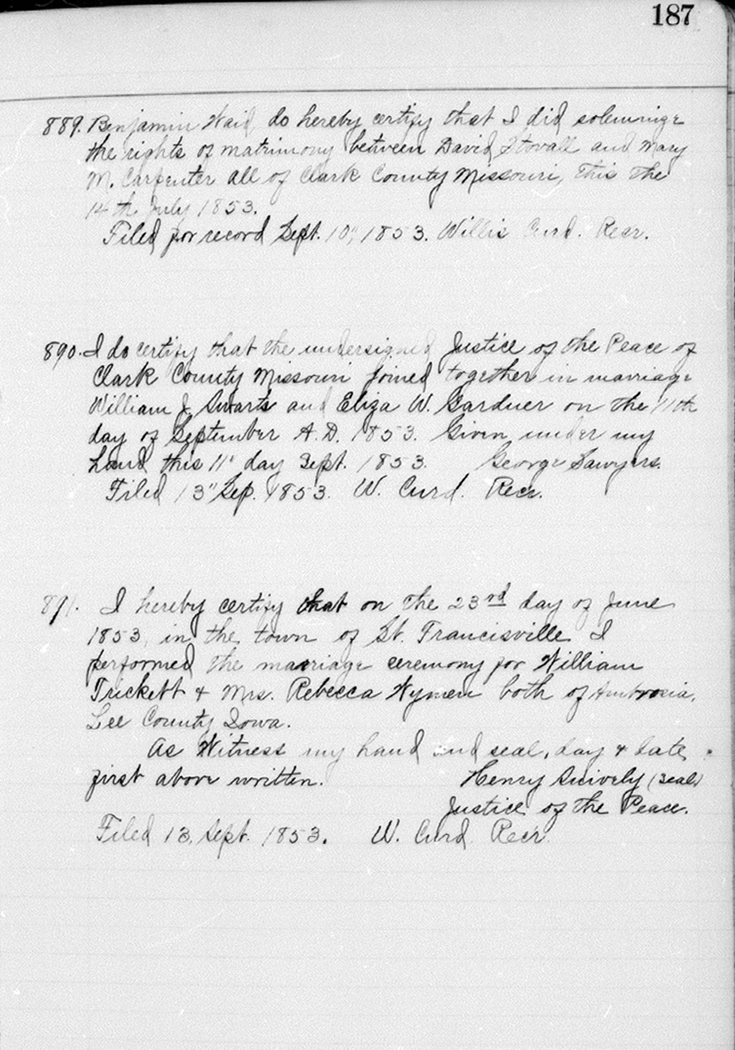 187
889. Benjamin Waid, do hereby certify that I did solemnize
the rights of matrimony between David Stovall and Mary
M. Carpenter all of Clark County Missouri, this the
14th July 1853.
Filed for record Sept. 10", 1853. Willis Curd. Recr.
890. I do certify that the undersigned Justice of the Peace of
Clark County Missouri joined together in marriage
William J. Swarts and Eliza W. Gardner on the 11th
day of September A.D. 1853. Given under my
hand this 11" day Sept. 1853. George Sawyers.
Filed 13" Sep. 1853. W. Curd. Recr.
891. I hereby certify that on the 23rd day of June
1853, in the town of St. Francisville I
performed the marriage ceremony for William
Trickett & Mrs. Rebecca Wymen both of Ambrosia,
Lee County Iowa.
As Witness my hand and seal, day & date
first above written. Henry Snively (seal)
Justice of the Peace.
Filed 13, Sept. 1853. W. Curd Recr.